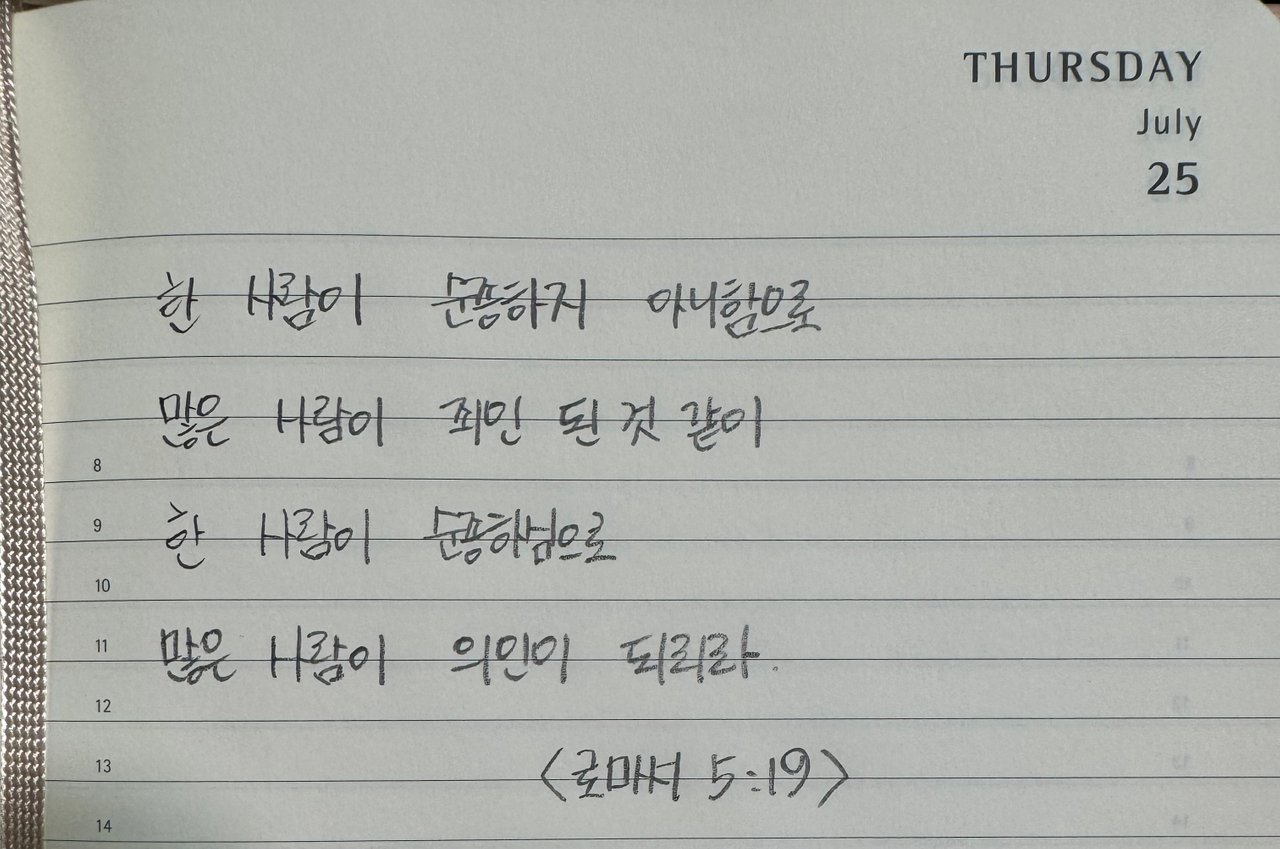 THURSDAY
July
25
한 사람이 순종하지 아니함으로
많은 사람이 죄인 된 것 같이
8
한 사람이 순종하심으로
9
10
많은 사람이 의인이 되리라.
11
12
<로마서 5:19>
13
14